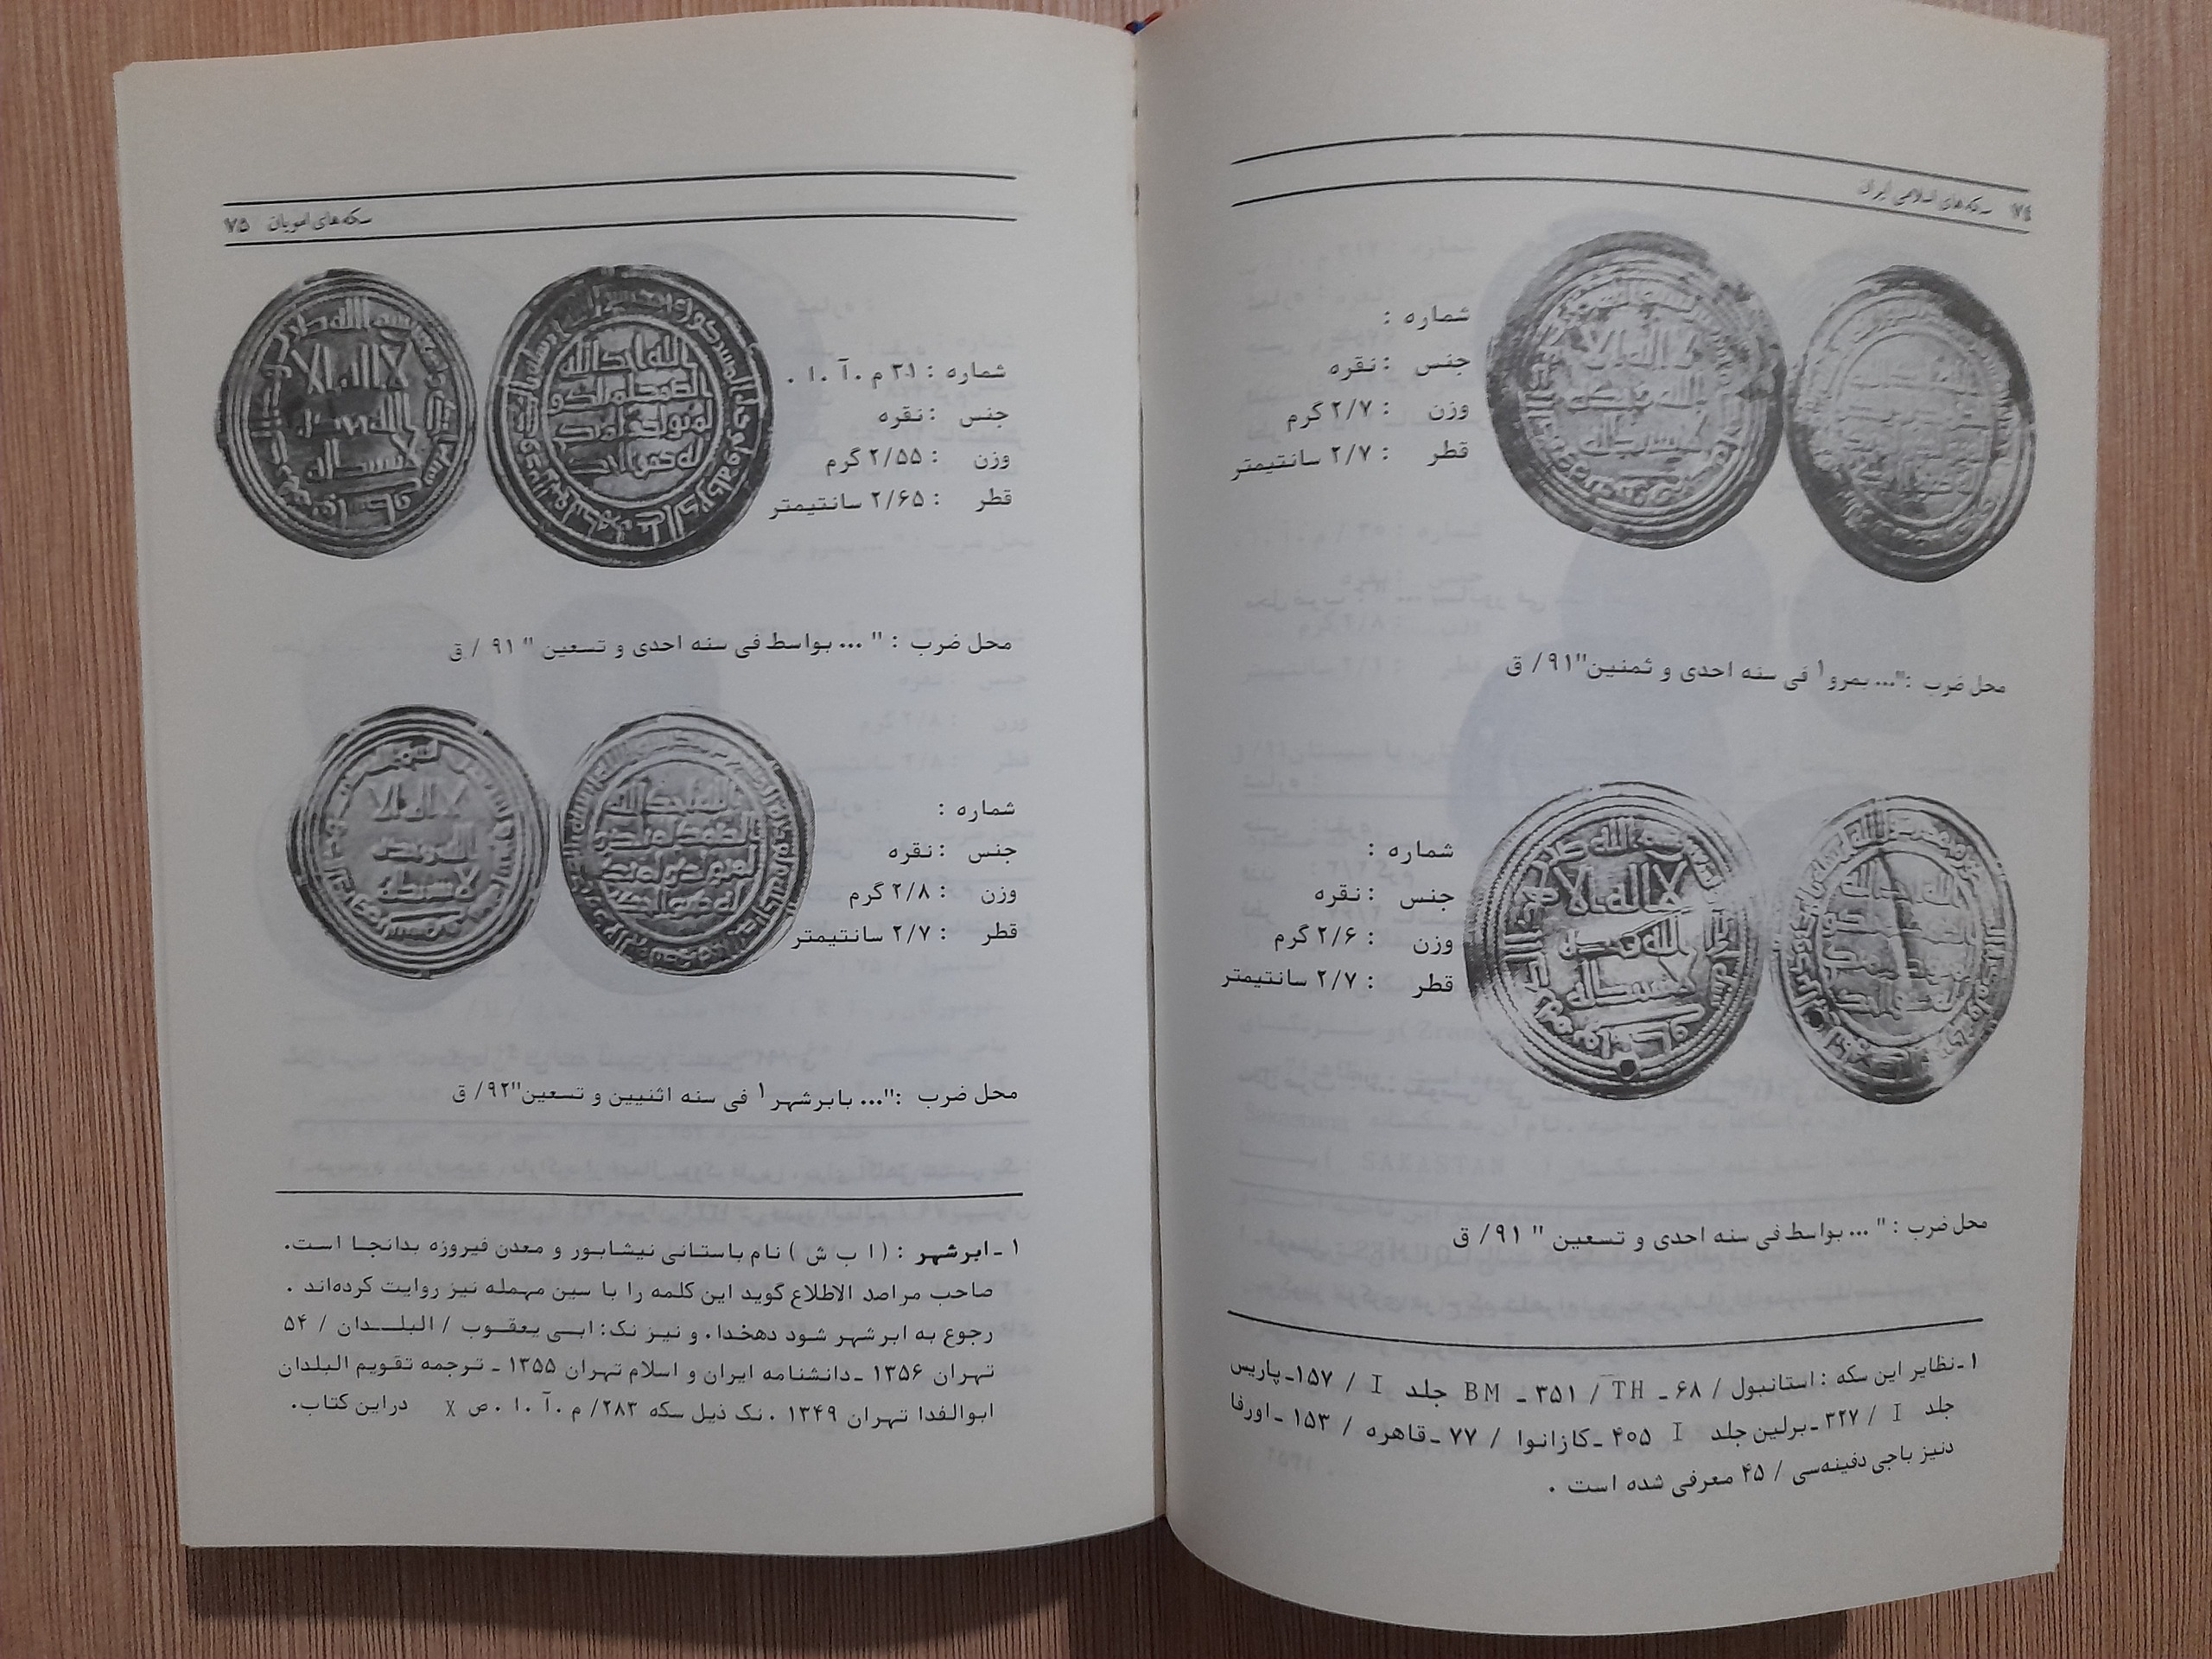 ۷۴ سکه‌های اسلامی ایران
شماره :
جنس : نقره
وزن : ۲/۷ گرم
قطر : ۲/۷ سانتیمتر
محل ضرب :"... بمرو۱ فی سنه احدی و ثمنین"۹۱/ ق
شماره :
جنس : نقره
وزن : ۲/۶ گرم
قطر : ۲/۷ سانتیمتر
محل ضرب : " ... بواسط فی سنه احدی و تسعین " ۹۱/ ق
۱ـنظایر این سکه : استانبول / ۶۸ ـ TH / ۳۵۱ ـ BM جلد I / ۱۵۷ـپاریس
جلد I / ۳۲۷ ـبرلین جلد I ۴۰۵ ـکازانوا / ۷۷ ـقاهره / ۱۵۳ ـاورفا
دنیز باجی دفینه‌سی / ۴۵ معرفی شده است .
سکه‌های امویان ۷۵
شماره : ۳۱ م .آ .ا .
جنس : نقره
وزن : ۲/۵۵ گرم
قطر : ۲/۶۵ سانتیمتر
محل ضرب : " ... بواسط فی سنه احدی و تسعین " ۹۱ / ق
شماره :
جنس : نقره
وزن : ۲/۸ گرم
قطر : ۲/۷ سانتیمتر
محل ضرب :"... بابرشهر۱ فی سنه اثنیین و تسعین"۹۲/ ق
۱ ـابرشهر : ( ا ب ش ) نام باستانی نیشابور و معدن فیروزه بدانجا است.
صاحب مراصد الاطلاع گوید این کلمه را با سین مهمله نیز روایت کرده‌اند .
رجوع به ابرشهر شود دهخدا. و نیز نک: ابی یعقوب / البلدان / ۵۴
تهران ۱۳۵۶ ـدانشنامه ایران و اسلام تهران ۱۳۵۵ ـ ترجمه تقویم البلدان
ابوالفدا تهران ۱۳۴۹ .نک ذیل سکه ۲۸۳/ م .آ .ا .ص X دراین کتاب.